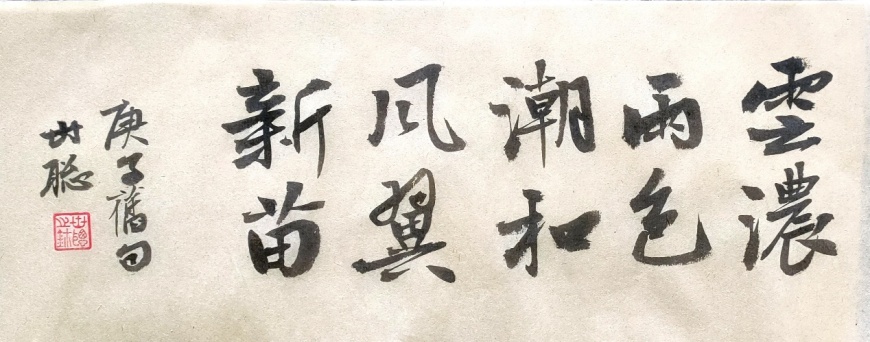 雲濃
雨色
潮和
風翼
新苗
庚子舊句
世聪